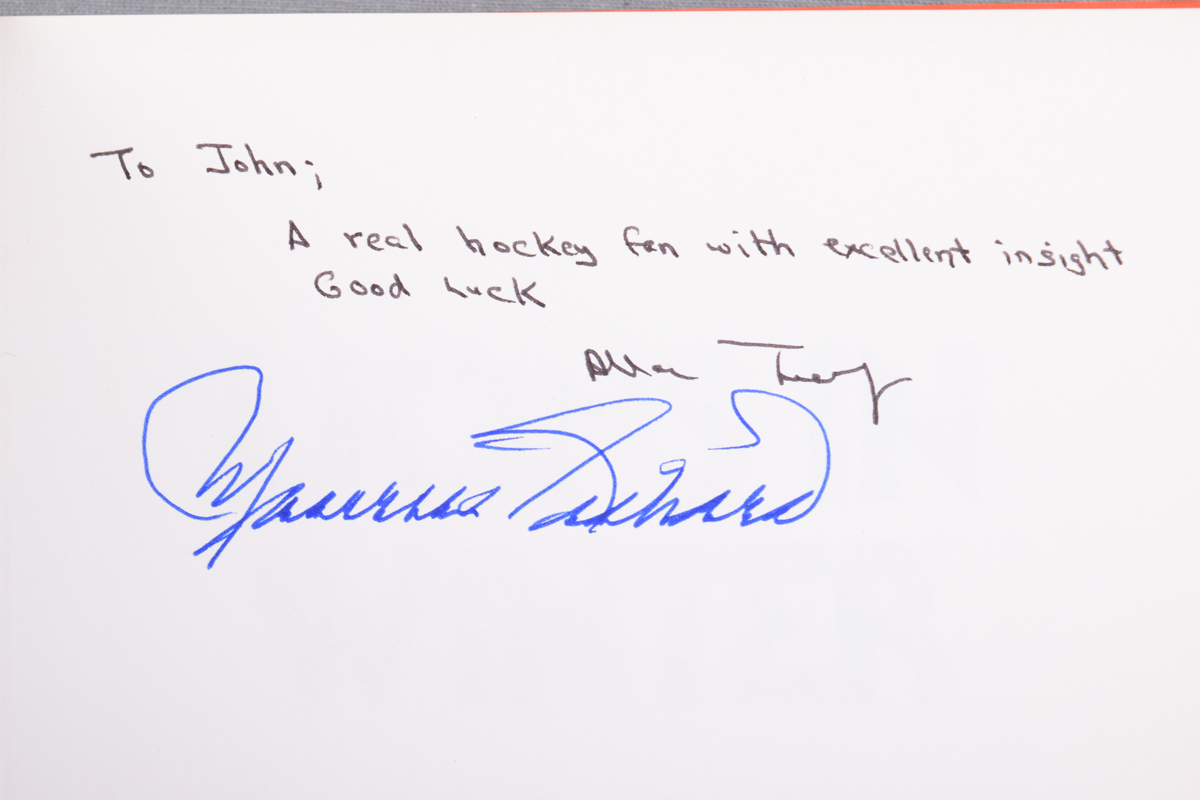 To John;
A real hockey fan with excellent insight
Good Luck
Allan Turowetz
Maurice Richard